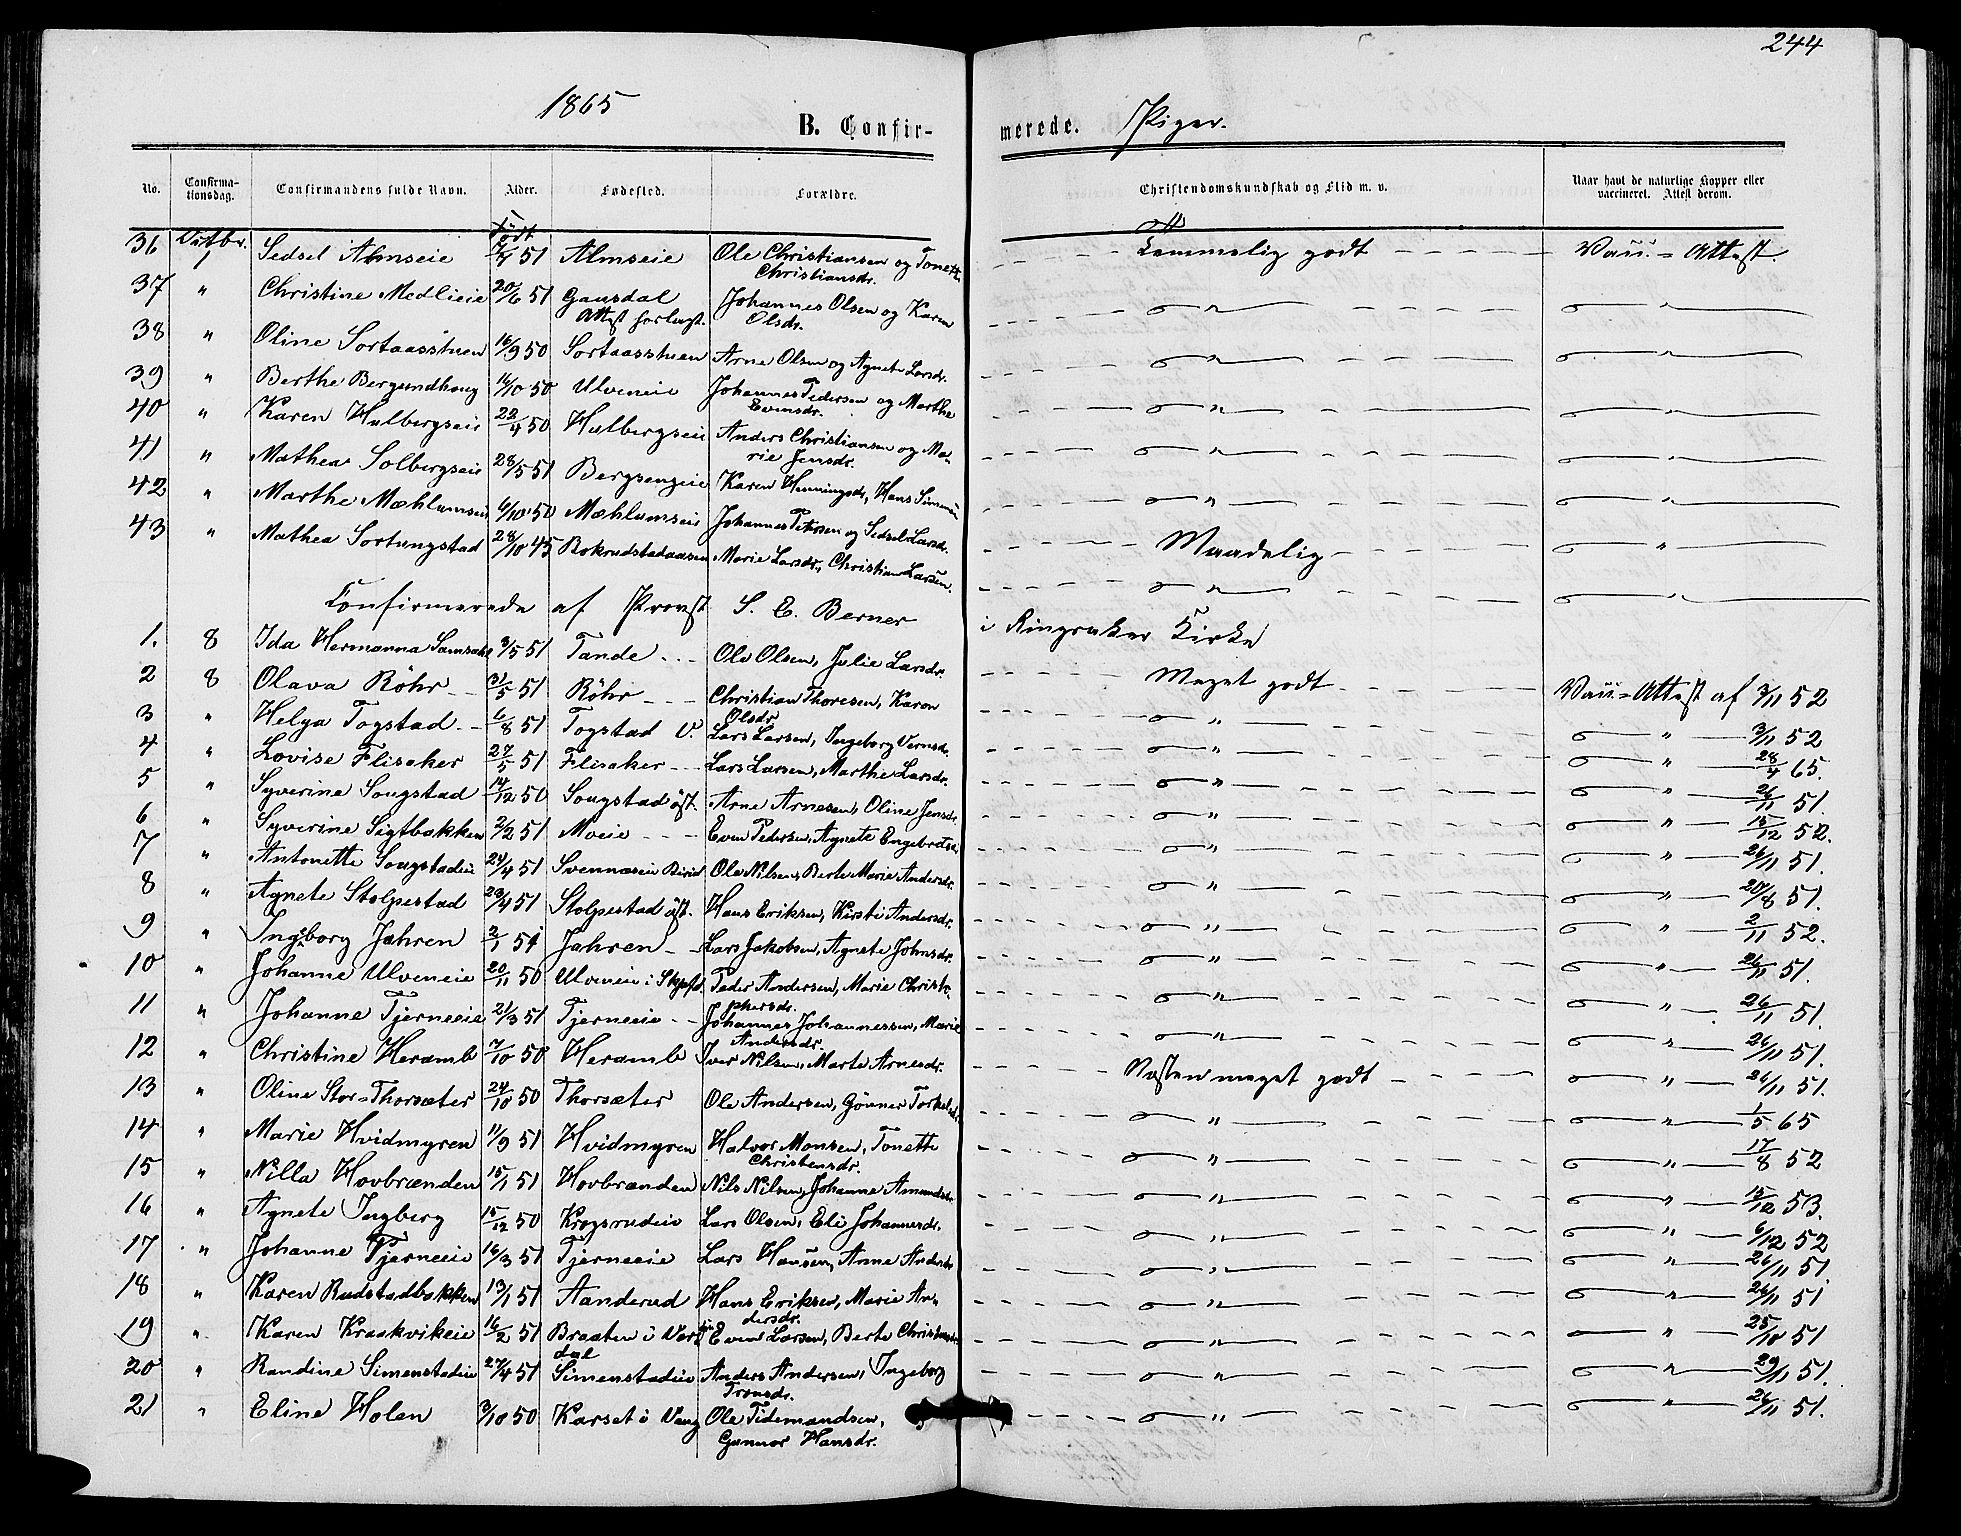 244
1865
B. Confir-
merede. Piger.
No. Confirma-tionsdag. Confirmandens fulde Navn. Alder. Fødested. Forældre. Christendomskundskab og Flid m. v. Naar havt de naturlige Kopper eller vaccineret. Attest derom.
Født
36 1 Sedsel Almseie 51 Almseie Ole Christiansen og Tonette Christiansdr. Temmelig godt Vacc.-Attest.
37 " Christine Medlieie 20/6 51 Gausdal Attest forlagt. Johannes Olsen og Karen Olsdr. " "
38 " Oline Sortaasstuen 16/9 50 Sortaasstuen Arne Olsen og Agnete Larsdr. " "
39 " Berthe Bergundhaug 14/10 50 Ulveneie Johannes Pedersen og Marthe Evensdr. " "
40 " Karen Hulbergseie 22/4 50 Hulbergseie Anders Christiansen og Ma-rie Jensdr. " "
41 " Mathea Solbergseie 28/5 51 Bergsengeie Karen Henningsdr, Hans Simensen " "
42 " Marthe Mæhlumseie 6/10 50 Mæhlumseie Johannes Petersen og Sedsel Larsdr. Maadelig "
43 " Mathea Sortungstad 28/10 45 Bokrudstadaasen Marie Larsdr., Christian Larsen. " "
Confirmerede af Provst S. E. Berner i Ringsaker Kirke
1. 8 Ida Hermanna 3/5 51 Tande Ole Olsen, Julie Larsdr. Meget godt Vacc.-Attest af 3/11 52
2 8 Olava Röhr 31/5 51 Röhr Christian Thoresen, Karen Olsdr. " " 3/11 52
3 " Helga Togstad 6/8 51 Togstad V. Lars Larsen, Ingeborg Vernsdr. " " 28/4 65.
4 " Lovise Flisaker 27/5 51 Flisaker Lars Larsen, Marthe Larsdr. " " 26/11 51.
5 " Syverine Sougstad 14/12 50 Sougstad öst. Arne Arnesen, Oline Jensdr. " " 15/12 52.
6 " Syverine Sigtbakken 2/2 51 Moeie Even Pedersen, Agnete Engebretsdr. " " 26/11 51.
7 " Antonette Sougstadeie 24/4 51 Svennæseie Birid Ole Nilsen, Berte Marie Andersdr. " " 20/8 51.
8 " Agnete Stolpestad 23/4 51 Stolpestad öst. Hans Eriksen, Kirsti Andersdr. " " 2/11 52.
9 " Ingeborg Jahren 2/1 51 Jahren Lars Jakobsen, Agnete Johnsdr. " " 26/11 51.
10 " Johanne Ulveneie 20/11 50 Ulveneie i Peder Andersen, Marie Christo-phersdr. " " 26/11 51.
11 " Johanne Tjerneeie 21/3 51 Tjerneeie Johannes Johannessen, Marie Andersdr. " " 26/11 51.
12 " Christine Heramb 7/10 50 Heramb Iver Nilsen, Marte Arnesdr. Næsten meget godt " 26/11 51.
13 " Oline Stor-Thorsæter 24/10 50 Thorsæter Ole Andersen, Gönner Torkelsdr. " " 1/5 65
14 " Marie Hvidmyren 11/9 51 Hvidmyren Halvor Monsen, Tonette Christensdr. " " 17/8 52
15 " Nilla Hovbrænden 15/1 51 Hovbrænden Nils Nilsen, Johanne Amundsdr. " " 15/12 53.
16 " Agnete Ingberg 15/12 50 Krogsrudeie Lars Olsen, Eli Johannesdr. " " 6/12 52
17 " Johanne Tjerneeie 16/3 51 Tjerneeie Lars Hansen, Anne Andersdr. " " 26/11 51
18 " Karen Rudstadbakken 13/1 51 Aanderud Hans Eriksen, Marie An-dersdr. " " 26/11 51
19 " Karen Kraskvikeie 16/2 51 Braaten i Vardal Even Larsen, Berte Christensdr. " " 25/10 51
20 " Randine Simenstadeie 27/4 51 Simenstadeie Anders Andersen, Ingeborg Tronsdr. " " 29/11 51.
21 " Eline Holen 3/10 50 Karset i Vang Ole Tidemandsen, Gunnor Hansdr. " " 26/11 51.